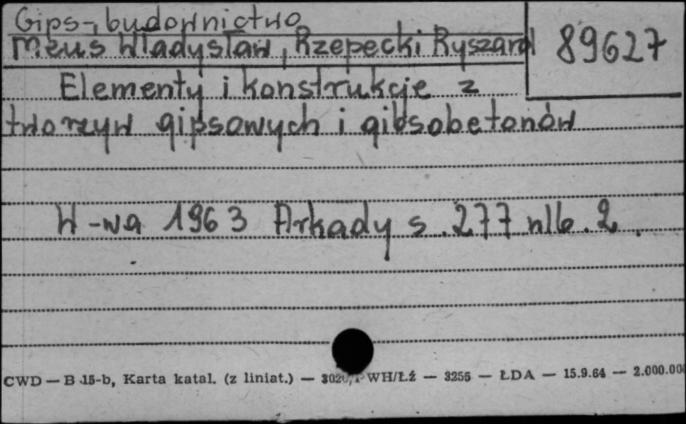 Gips-, budownictwo
89627
Meus Władysław, Rzepecki Ryszard
Elementy i konstrukcje z
tworzyw gipsowych i gibsobetonów
W-wa 1963 Arkady s. 277 nlb. 2.
CWD — B 15-b, Karta katal. (z liniat.) — WH/Łż — 3255 — ŁDA — 15.9.64 — 2.000.00